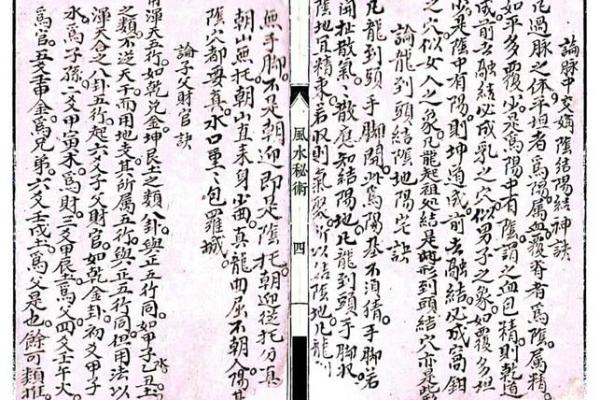 論脉中交媾陰結陽結神訣
凡過脉之体平坦者為陽属血覆脊者為陰属精
如平多覆少是為陽中有陰謂之血包精則乾道
成前去融結必成乳之穴似男子之象如覆多坦
少是陰中有陽則坤道成前去融結必成窩鉗
之穴似女人之象凡龍起祖処結是此形到頭結穴亦是
論龍到頭結陰地陽宅訣
凡龍到頭手脚開此為陽基不須猜手脚若
開扯散氣氣散應知結陽地凡龍到頭手脚収
陰地宜精求若収則氣聚所以結陰地凡龍
風水秘術
四
無手脚不是朝迎即是陰托朝迎從托分真
朝山無托朝山直来身少曲真龍曲屈不朝人陽基
陰穴都毋真水口重重包羅城
論子父財官訣
用渾天五行如乾兌金坤艮土之類八卦與正五行同如甲子乙丑
之類不逆天干而用地支其所属五行與正五行同但用法以
渾天合之八卦五行起六爻子父財官如乾金卦初爻甲子
水為子孫二爻甲寅木為財三爻甲辰土為父四爻壬午火
為官五爻壬申金為兄弟六爻壬戌土為父是也餘可類推